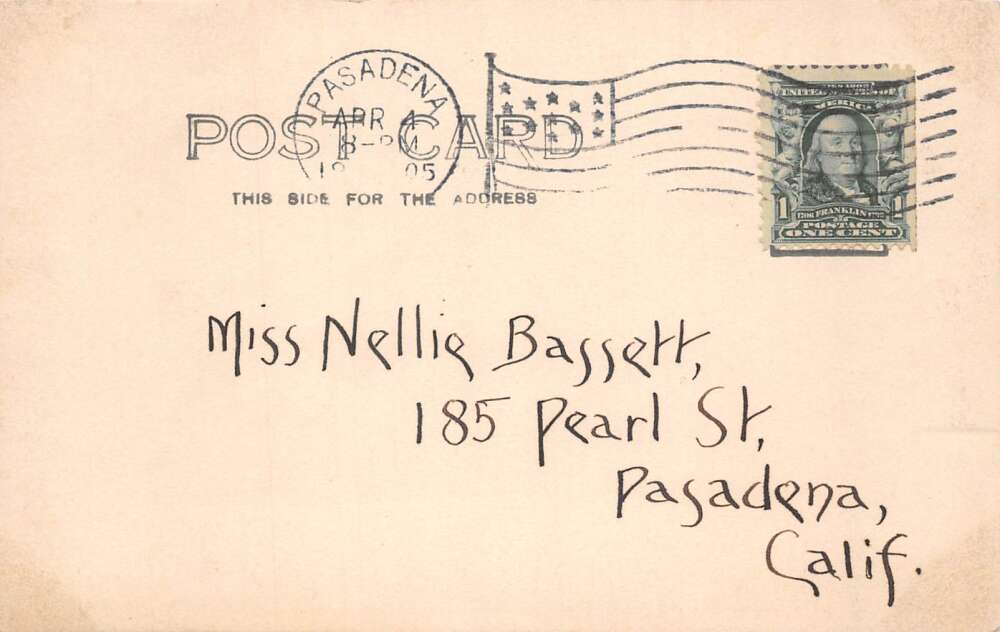 PASADENA
APR 4
8-PM
05
POST CARD
THIS SIDE FOR THE ADDRESS
UNITED STATES OF
AMERICA
1 FRANKLIN 1
POSTAGE
ONE CENT
Miss Nellie Bassett,
185 Pearl St,
Pasadena,
Calif.